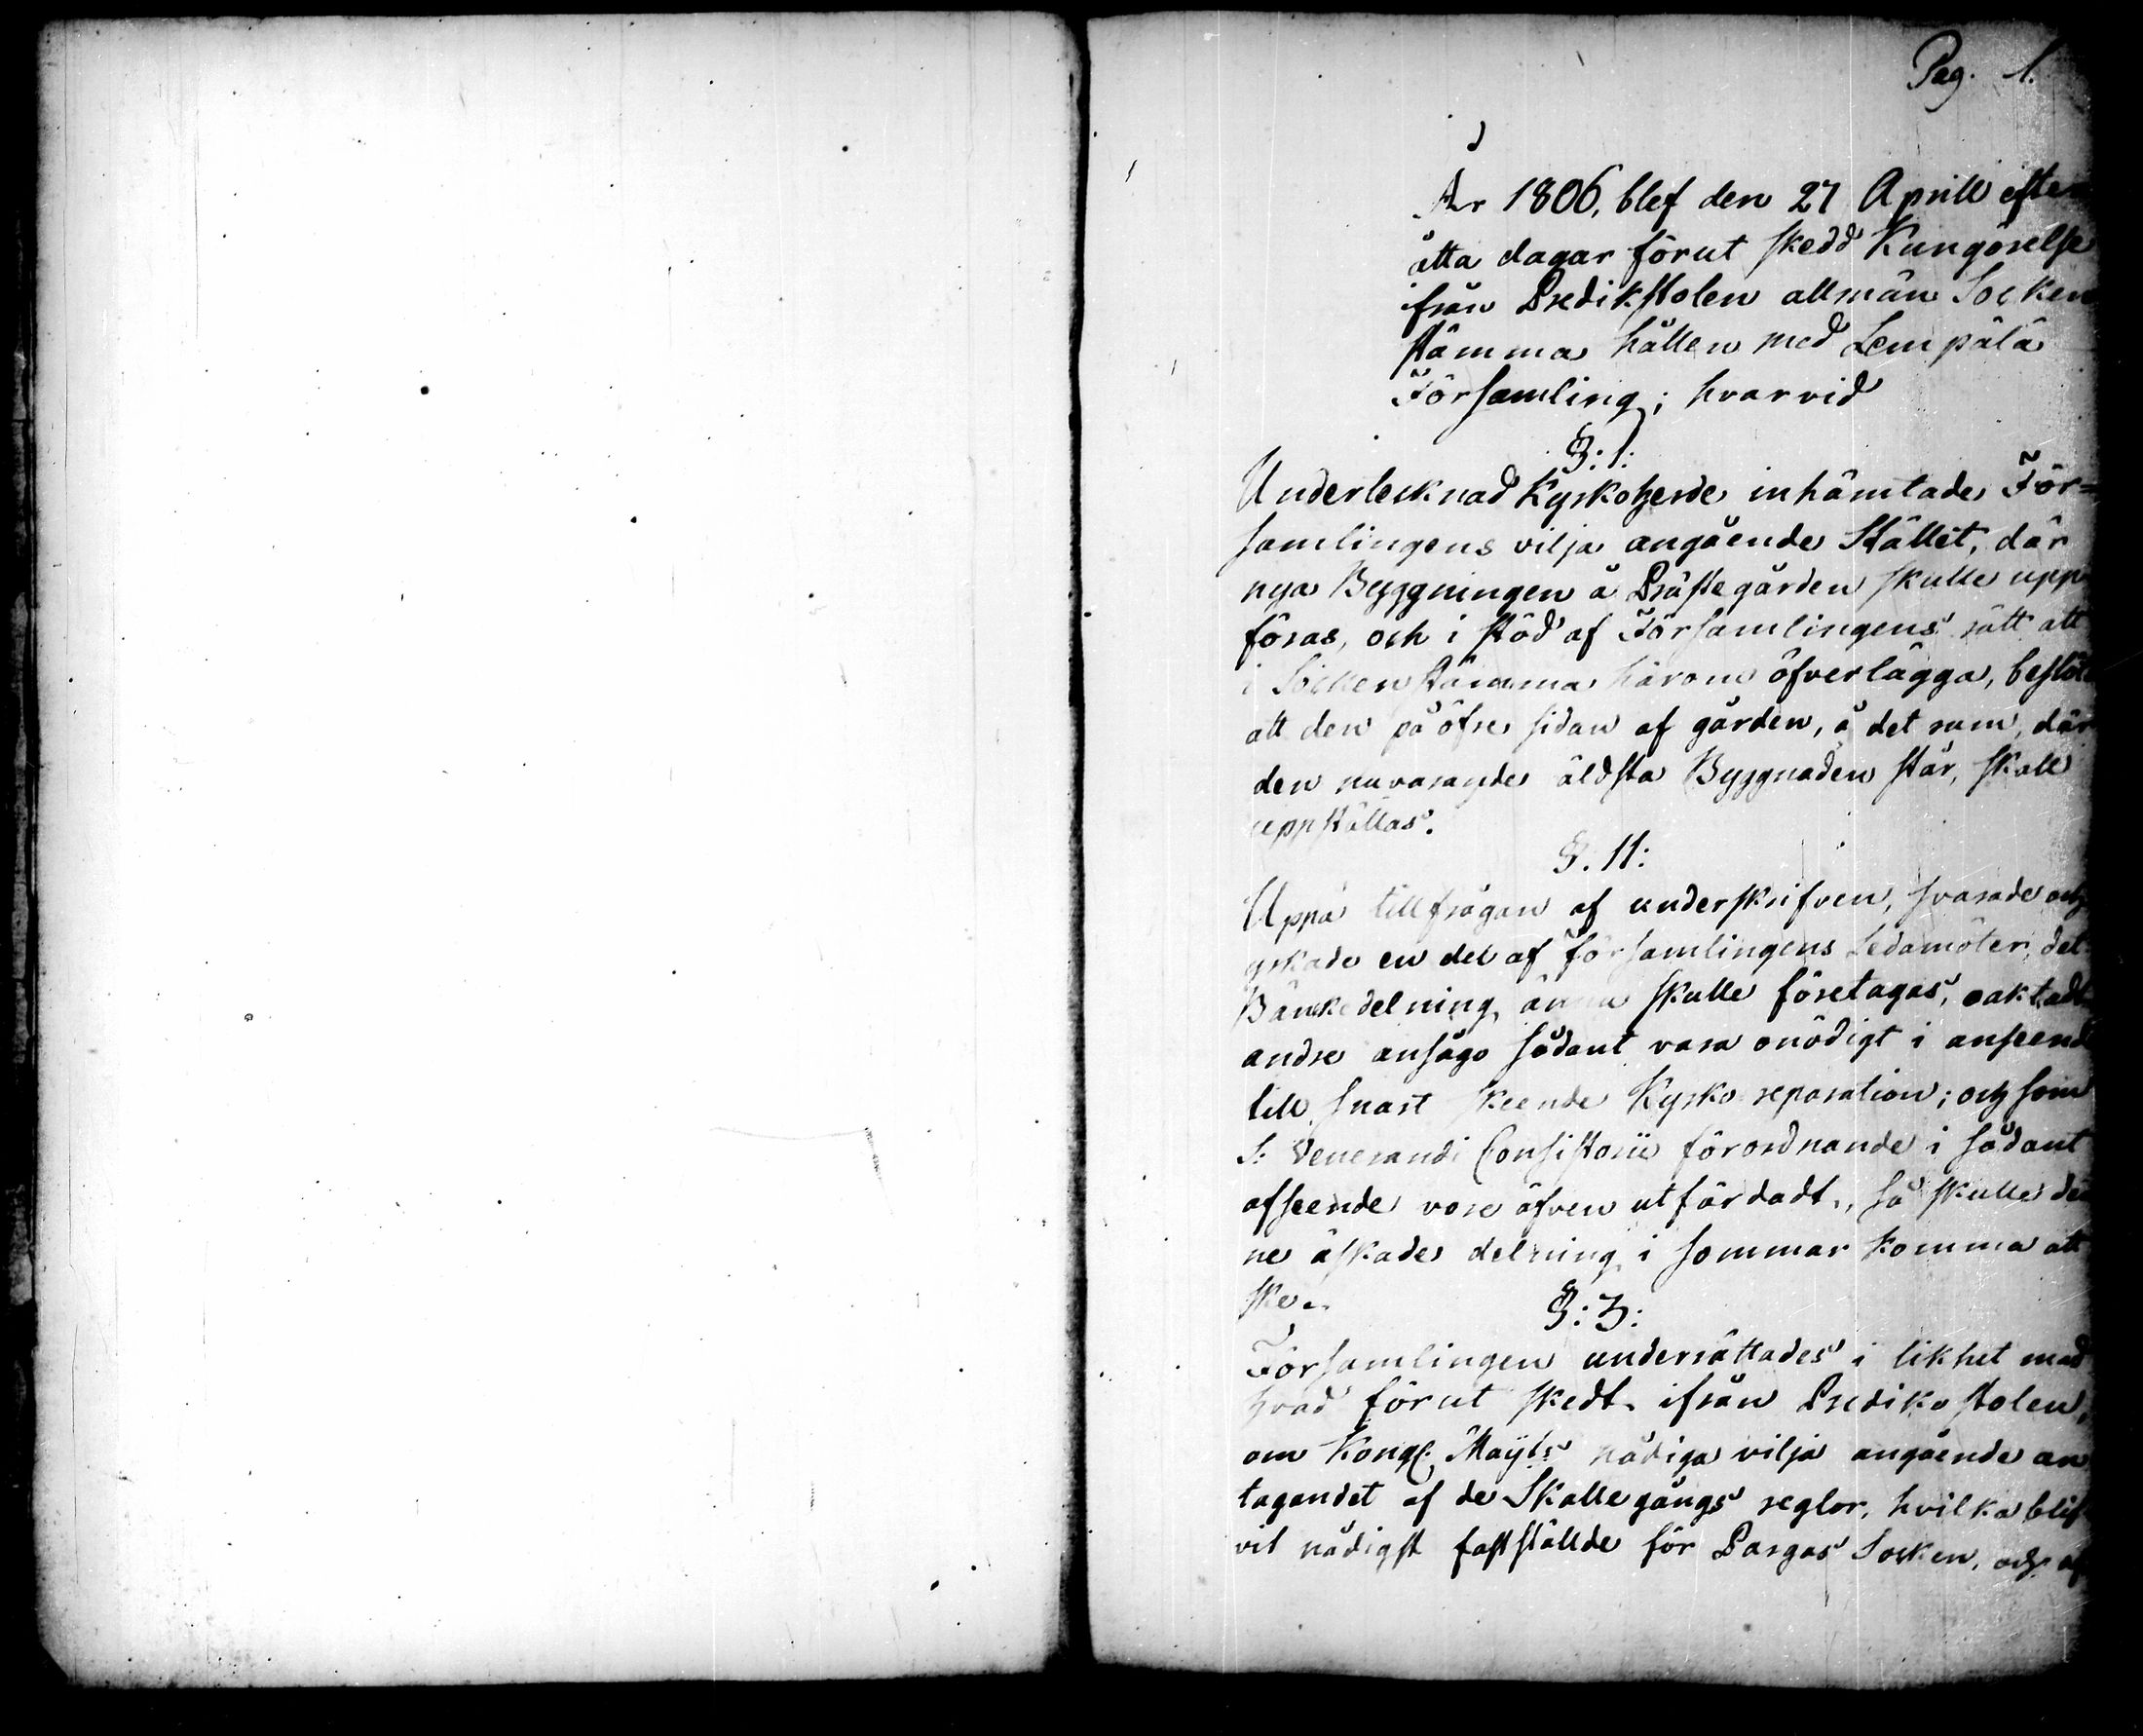 Pag. 1.
År 1806, blef den 27 Aprill efter
åtta dagar förut skedd Kungörelse
ifrån Predikstolen allmän Socken
stämma hållen med Lembälä
Församling; hvarvid
§: 1:
Underteknad Kyrkoherde inhämtade För=
samlingens vilja angående Stället, där
nya Byggningen å Prästegården skulle upp
föras, och i stöd af Församlingens rätt att
i Sockenstämma härom öfverlägga, beslöts
att den på öfre sidan af gården, å det rum, där
den nuvarande äldsta Byggnaden står, skall
uppställas.
§. 11:
Uppå tillfrågan af underskrifven, svarade och
yrkade en del af Församlingens Ledamöter, det
Bänkedelning ännu skulle företagas, oaktadt
andre ansågo sådant vara onödigt i anseende
till snart skeende Kyrko reparation; och som
S: Venerandi Consistorii förordnande i sådant
afseende vore äfven utfärdadt, så skulle den
ne äskade delning i sommar komma att
ske.
§: 3:
Församlingen underrättades i likhet med
hvad förut skedt ifrån Prediko stolen,
om Kongl. Maÿts nådiga vilja angående an
tagandet af de Skallegångs reglor, hvilka blif
vit nådigst fastställde för Pargas Socken, och af